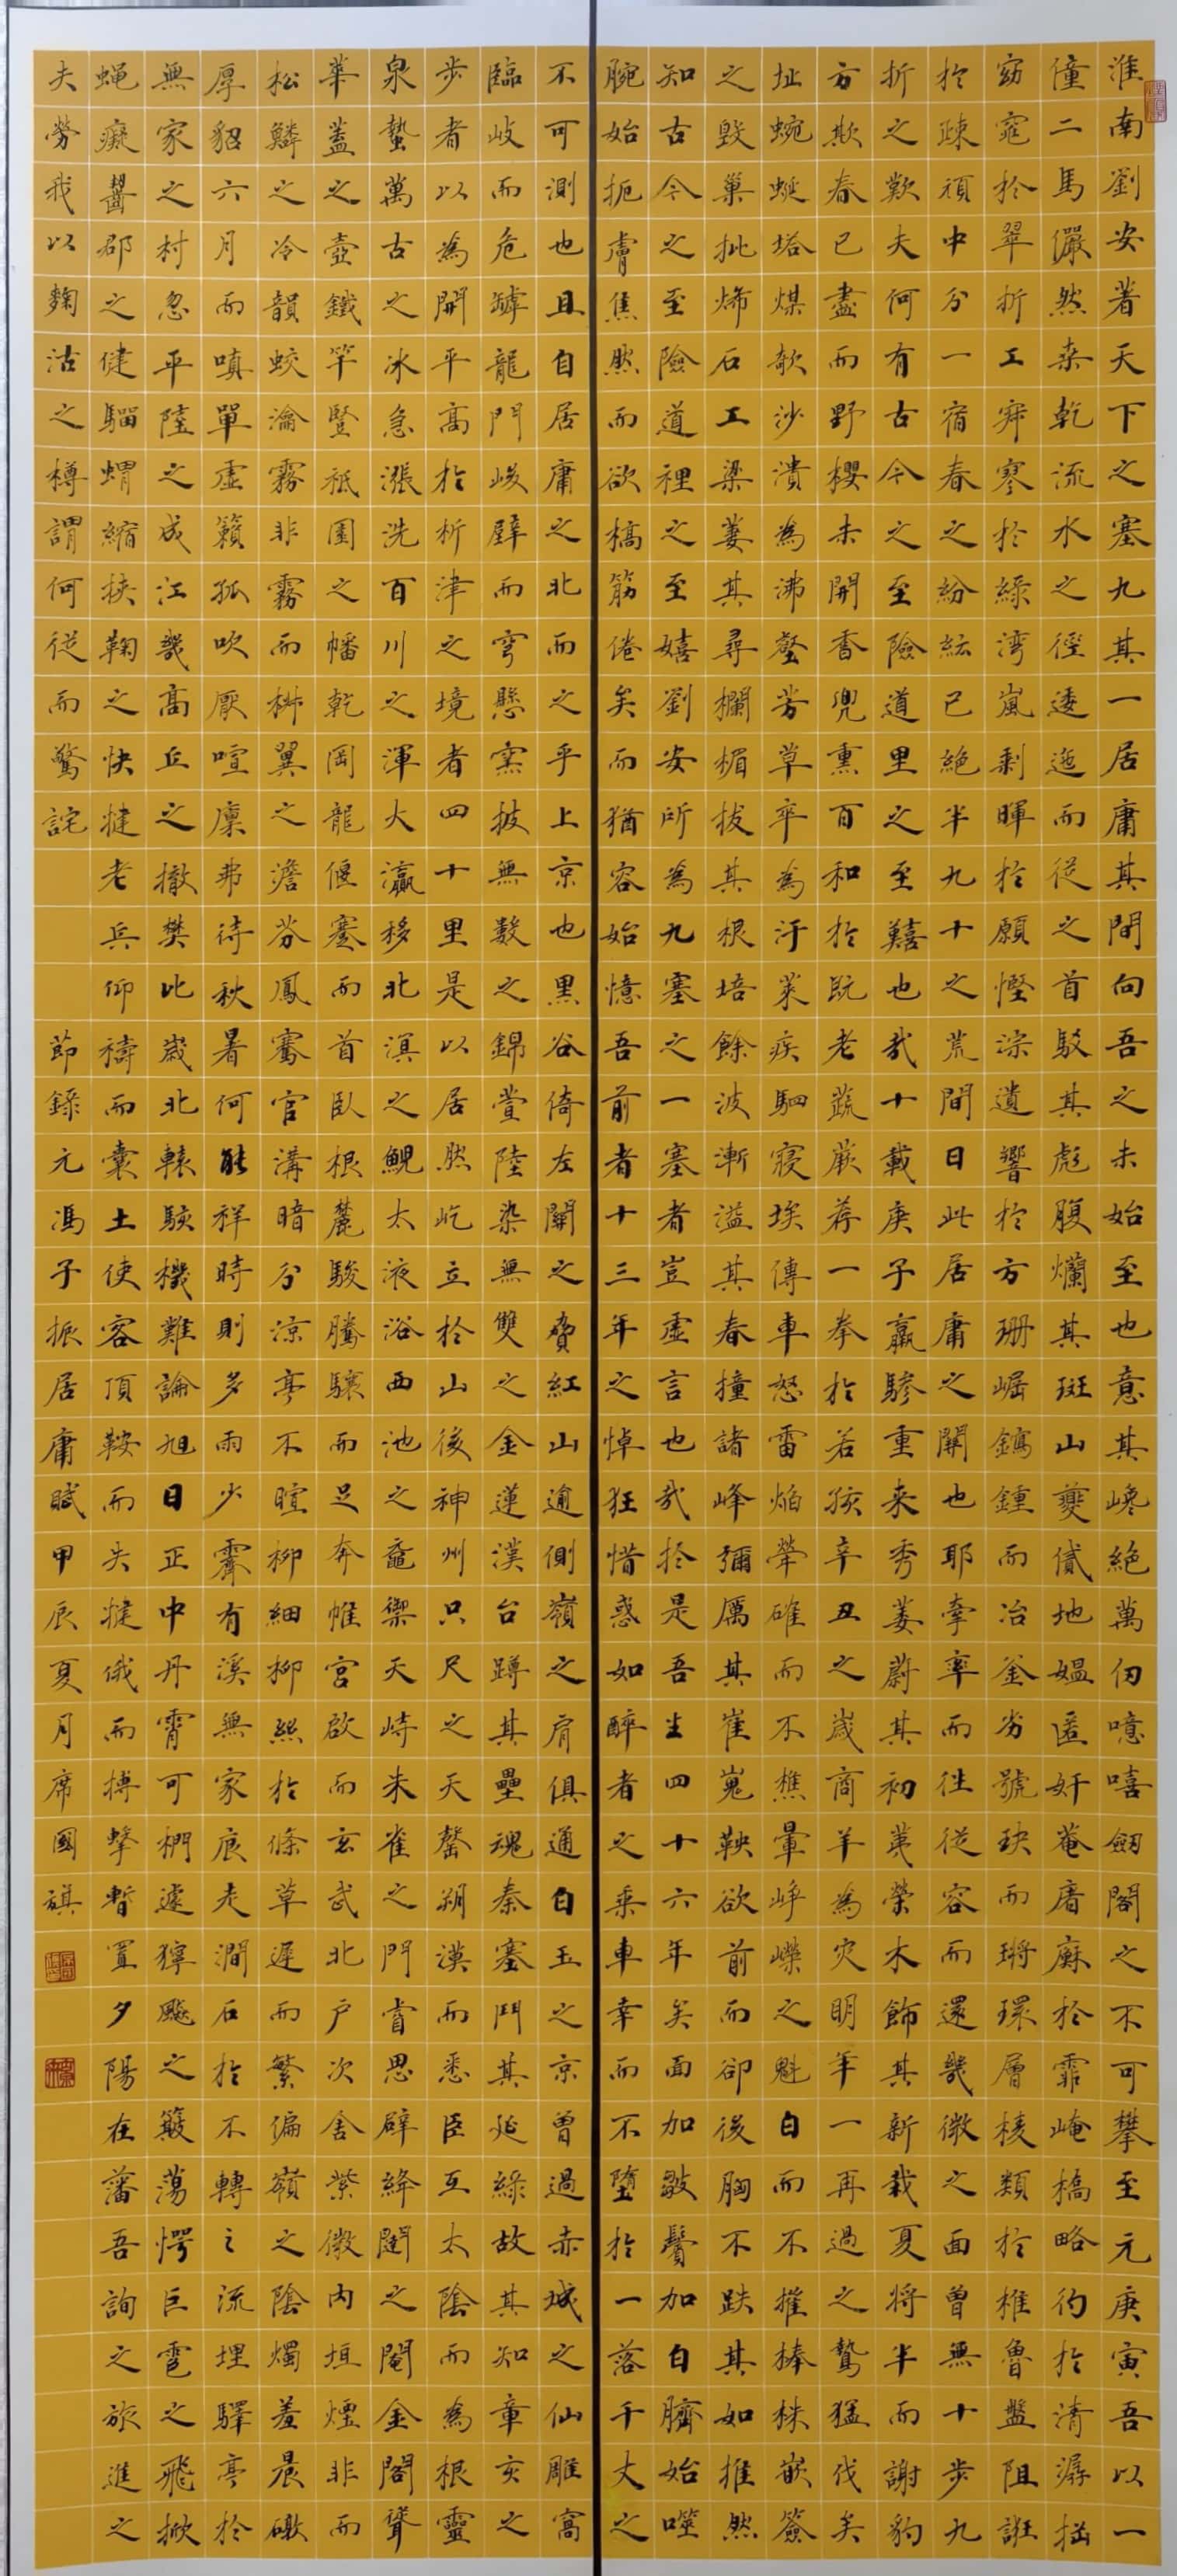 淮南劉安著天下之塞九其一居庸其間向吾之未始至也意其巉絕萬仞噫嘻劒閣之不可攀至元庚寅吾以一
僮二馬儼然来乾流水之徑逶迤而從之首駁其彪腹爛其斑山夔貸地媼匿奸菴廜廯於霏崦橋略彴於清潺拙
窈窕於翠折工穽寥於綠湾嵐剩暉於願慳淙遺響於方珊崛鏑鍾而冶釜劣號玦而琳環層棱類於椎魯盤阻誑
於踈頑中分一宿春之紛紜已絕半九十之荒間日此居庸之關也耶牽率而往從容而還幾微之面曾無十步九
折之歎夫何有古今之至險道里之至囏也哉十載庚子羸驂重来秀萎蔚其初荑榮木飾其新栽夏将半而謝豹
方欺春已盡而野櫻未開香兜熏百和於既老蔬蕨荐一拳於若孩辛丑之歲商羊為灾明年一再過之鷙猛伐矣
址蜿蜒塔煤欹沙潰為沸壑芳草卒為汙萊疾駟寢埃傳車怒雷焰犖確而不樵暈峥嶸之魁白而不摧棒株嵌簽
之毁巢批烯石工梁萋其尋欄楣拔其根培餘波漸溢其春撞諸峰彌厲其崔嵬鞅欲前而卻後胸不跌其如推然
知古今之至險道裡之至嬉劉安所為九塞之一塞者豈虛言也哉於是吾生四十六年矣面加皺鬢加白臍始噬
腕始扼膚焦然而欲槁筋倦矣而猶容始憶吾前者十三年之悼狂惜惑如醉者之乘車幸而不墮於一落千丈之
不可測也且自居庸之北而之乎上京也黑谷倚左關之脅紅山逾側嶺之肩俱通白玉之京曾過赤城之仙雕窩
臨岐而危罅龍門峻壁而穹懸窯披無數之錦萱陸染無雙之金蓮漢台蹲其壘魂秦塞鬥其延綠故其知章亥之
步者以為開平高於析津之境者四十里是以居然屹立於山後神州只尺之天罄朔漠而悉臣互太陰而為根靈
泉蟄萬古之冰急漲洗百川之渾大瀛移北溟之鯤太液浴西池之黿禦天峙朱雀之門睿思闢絳闕之閹金閣聳
華蓋之壺鐵竿豎祗園之幡乾岡龍偃蹇而首臥根麓駿騰驤而足奔帷宮啟而玄武北戶次舍紫微内垣煙非而
松鱗之冷韻蛟瀹霧非霧而栁翼之澹芬鳳騫官溝暗分涼亭不暄柳細柳絲於條草遲而繁偏嶺之陰燭羞晨礉
厚貂六月而嗔單虛籟孤吹厭喧凜弗待秋暑何能祥時則多雨少霽有溪無家痕走澗石於不轉之流埋驛亭於
無家之村忽平陸之成江幾高丘之撤樊比歲北轅駭機難論旭日正中丹霄可捫遽獰飈之簸蕩愕巨雹之飛掀
蠅癡齧郡之健騮蝟縮挾鞠之快犍老兵仰禱而囊土使客頂鞍而失犍俄而搏擊暫置夕陽在藩吾詢之旅進之
夫勞我以麴沽之樽謂何從而驚詫
節錄元馮子振居庸賦甲辰夏月席國祺